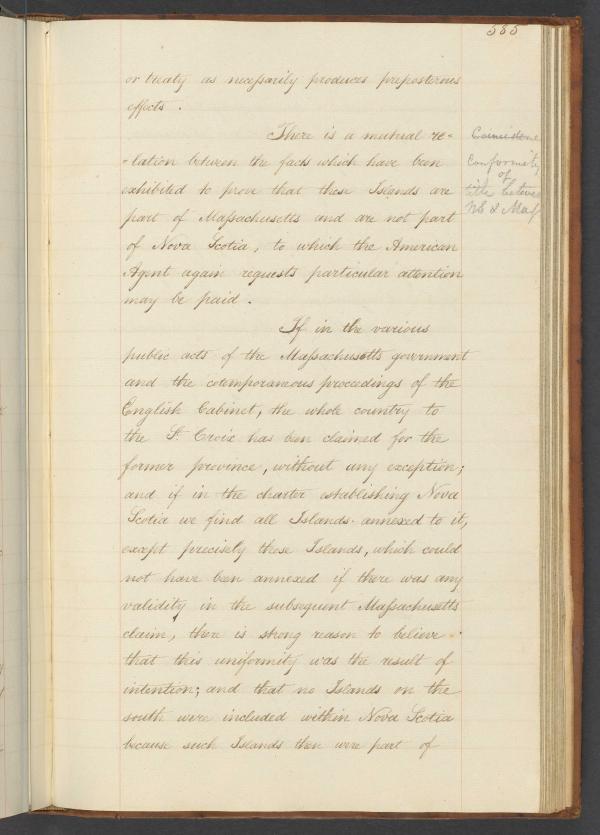 585
or treaty as necessarily produces preposterous
effects.
There is a mutual re=
=lation between the facts which have been
exhibited to prove that these Islands are
part of Massachusetts and are not part
of Nova Scotia, to which the American
Agent again requests particular attention
may be paid.
If in the various
public acts of the Massachusetts government
and the cotemporaneous proceedings of the
English Cabinet, the whole country to
the St. Croix has been claimed for the
former province, without any exception;
and if in the charter establishing Nova
Scotia we find all Islands annexed to it,
except precisely these Islands, which could
not have been annexed if there was any
validity in the subsequent Massachusetts
claim, there is strong reason to believe
that this uniformity was the result of
intention; and that no Islands on the
south were included within Nova Scotia
because such Islands then were part of
Conformity
of
title between
NS & Mass